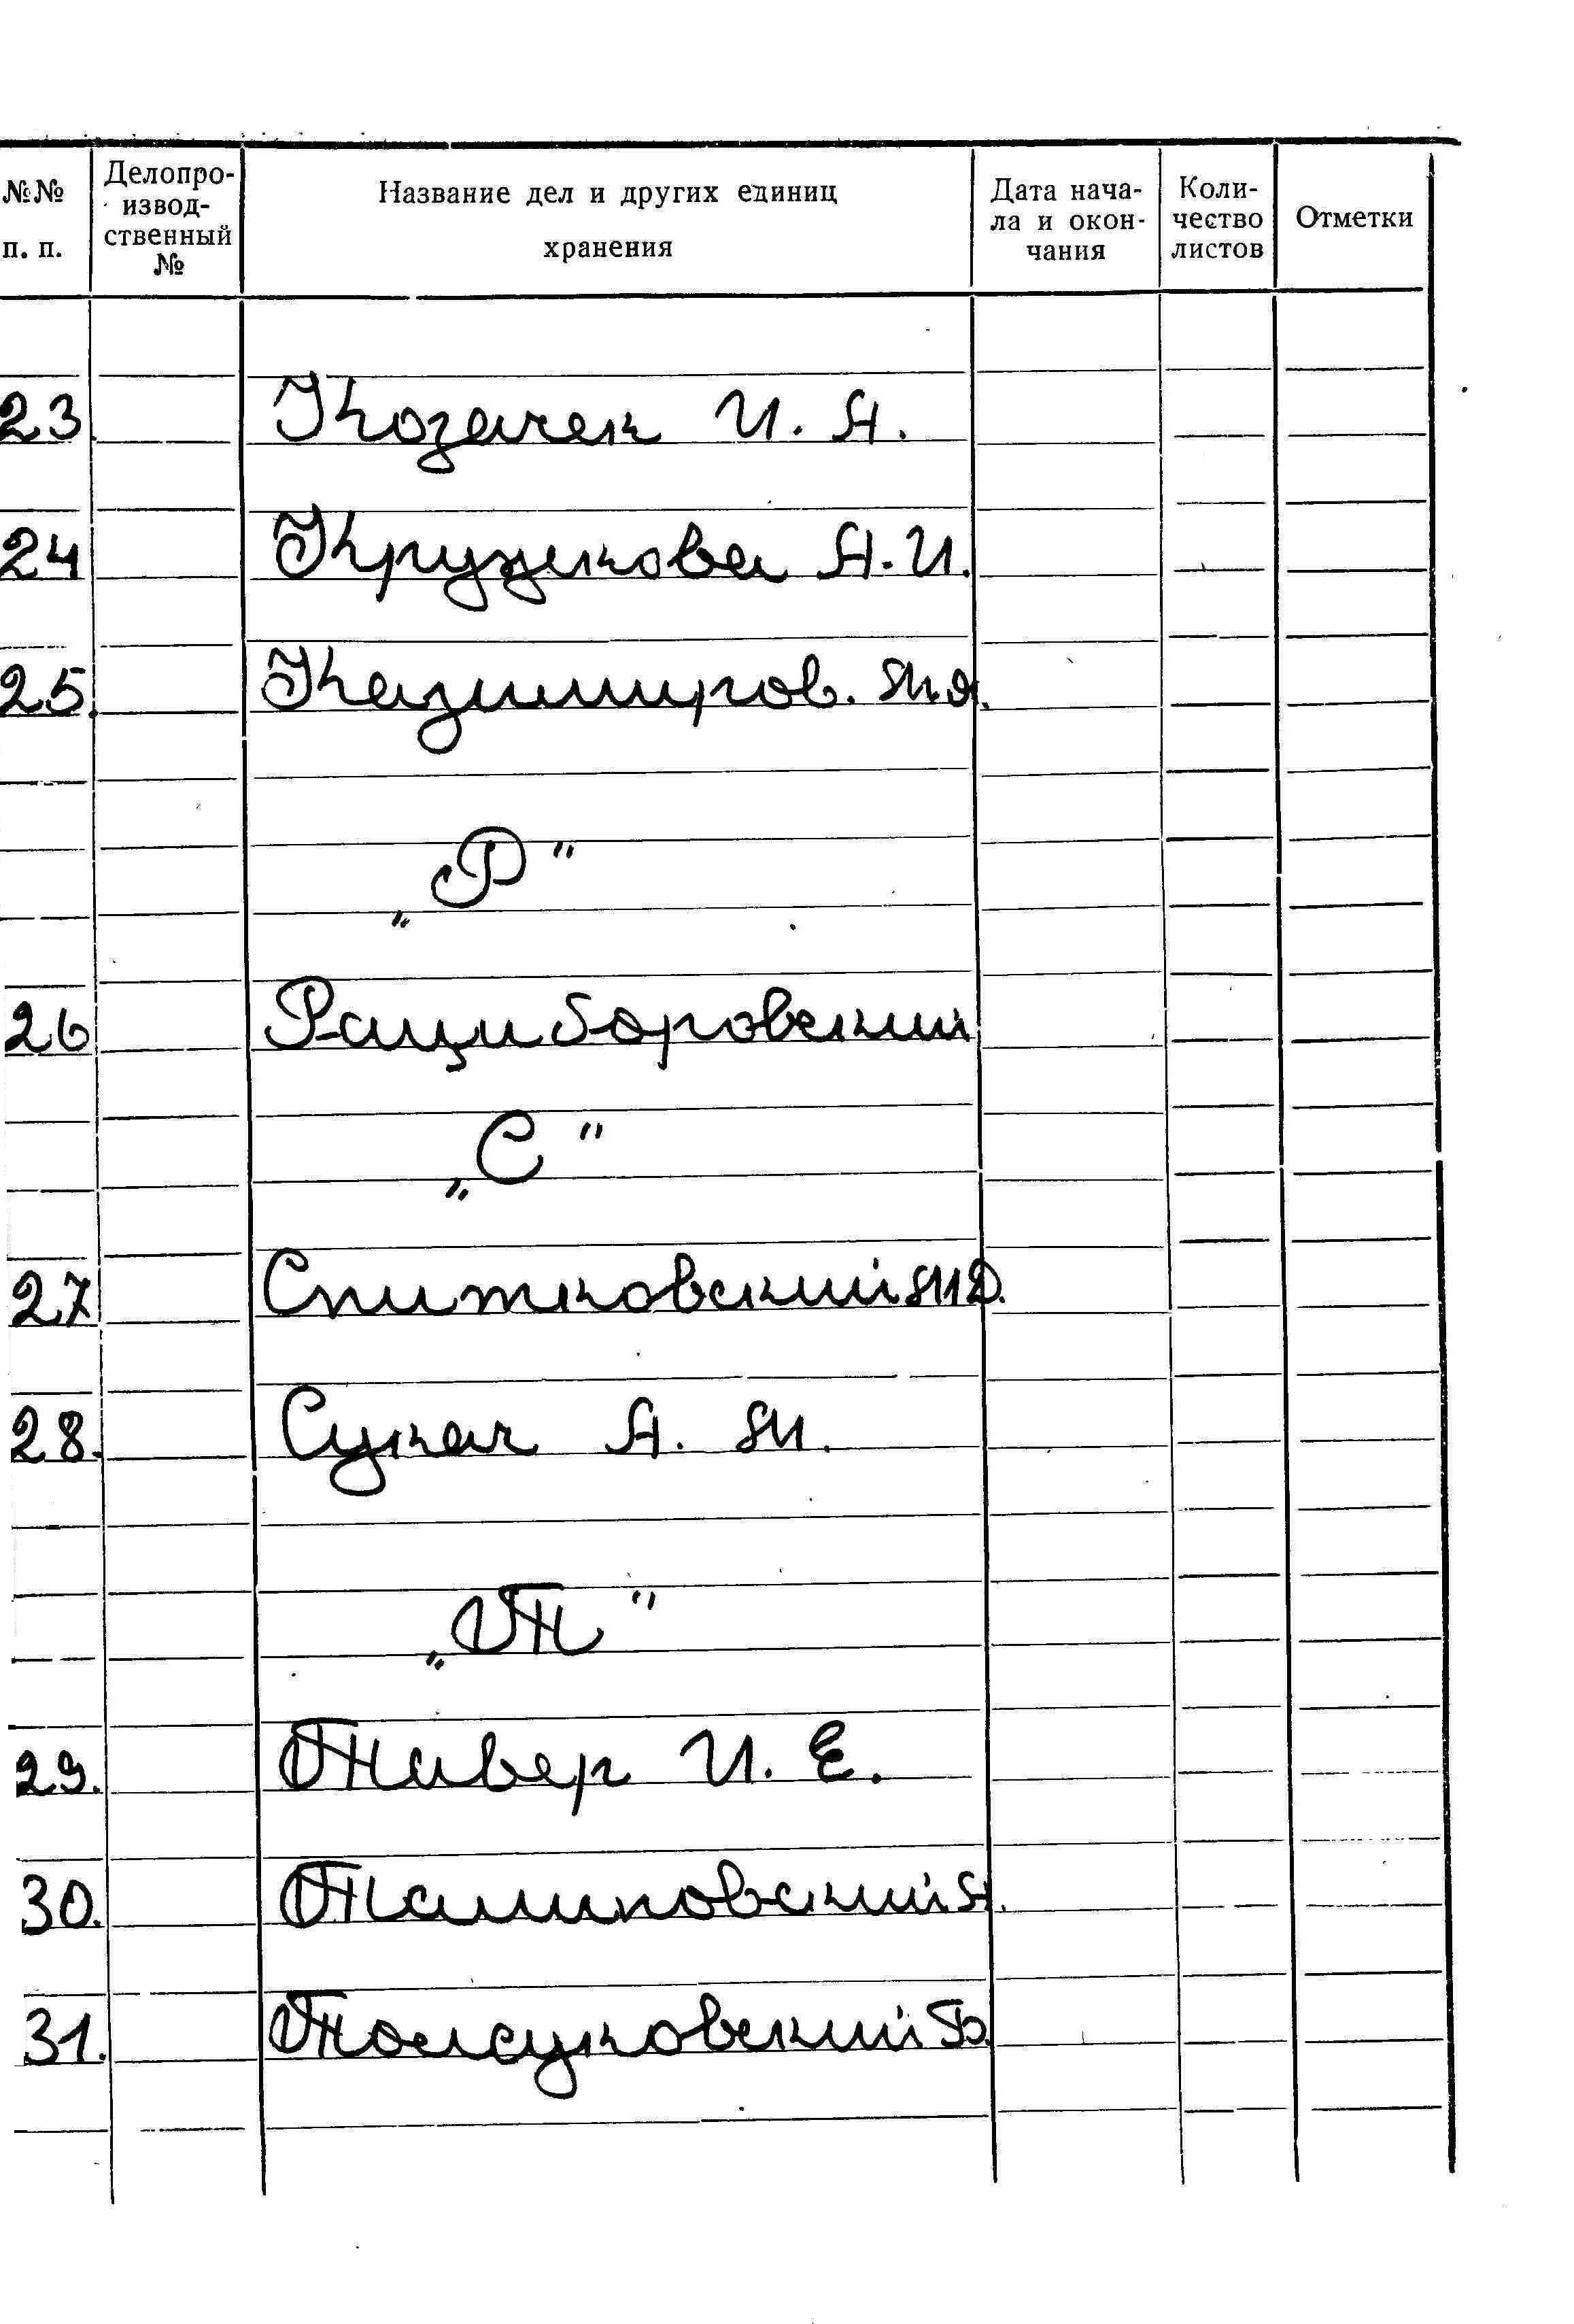 №№ п. п. Делопроизводственный № Название дел и других единиц хранения Дата начала и окончания Количество листов Отметки
23 Козачек И. А.
24 Кружкова А. И.
25. Казимиров. М. Я.
„Р"
26 Рациборовский
„С"
27 Спитковский М Д.
28. Сукач А. М.
„Т"
29. Тивер И. Е.
30. А.
31. Б.